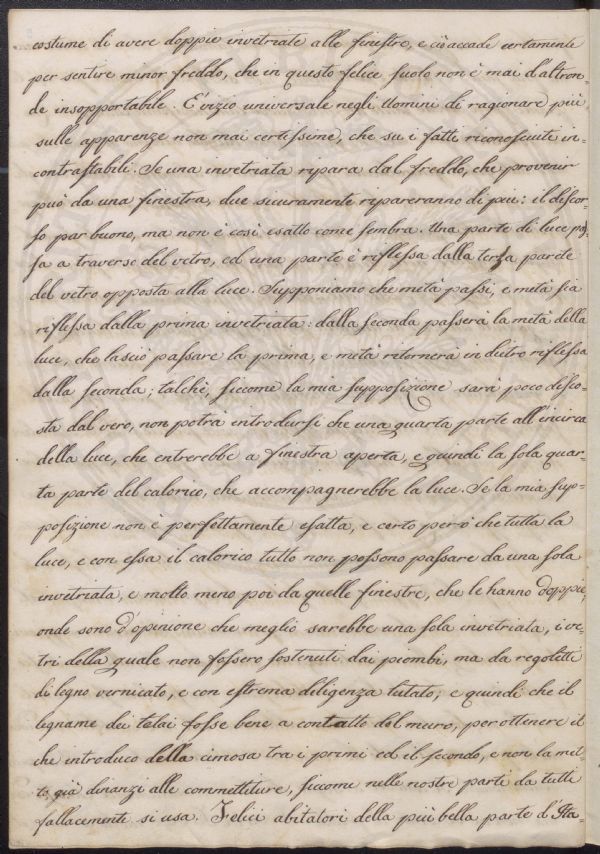 costume di avere doppie invetriate alle finestre, e ciò accade certamente
per sentire minor freddo, che in questo felice suolo non è mai d'altron-
de insopportabile. È vizio universale negli Uomini di ragionare più
sulle apparenze non mai certissime, che su i fatti riconosciuti in-
contrastabili. Se una invetriata ripara dal freddo, che provenir
può da una finestra, due sicuramente ripareranno di più: il discor-
so par buono, ma non è così esatto come sembra. Una parte di luce pas-
sa a traverso del vetro, ed una parte è riflessa dalla terza parete
del vetro opposta alla luce. Supponiamo che metà passi, e metà sia
riflessa dalla prima invetriata: dalla seconda passerà la metà della
luce, che lasciò passare la prima, e metà ritornerà in dietro riflessa
dalla seconda; talchè, siccome la mia supposizione sarà poco disco-
sta dal vero, non potrà introdursi che una quarta parte all'incirca
della luce, che entrerebbe a finestra aperta, e quindi la sola quar-
ta parte del calorico, che accompagnerebbe la luce. Se la mia sup-
posizione non è perfettamente esatta, è certo però che tutta la
luce, e con essa il calorico tutto non possono passare da una sola
invetriata, e molto meno poi da quelle finestre, che le hanno doppie,
onde sono d'opinione che meglio sarebbe una sola invetriata, i ve-
tri della quale non fossero sostenuti dai piombi, ma da regoletti
di legno vernicato, e con estrema deligenza lutato; e quindi che il
legname dei telai fosse bene a contatto del muro, per ottenere il
che introduco della cimosa tra i primi ed il secondo, e non la met-
to già dinanzi alle commettiture, siccome nelle nostre parti da tutti
fallacemente si usa. Felici abitatori della più bella parte d'Ita-